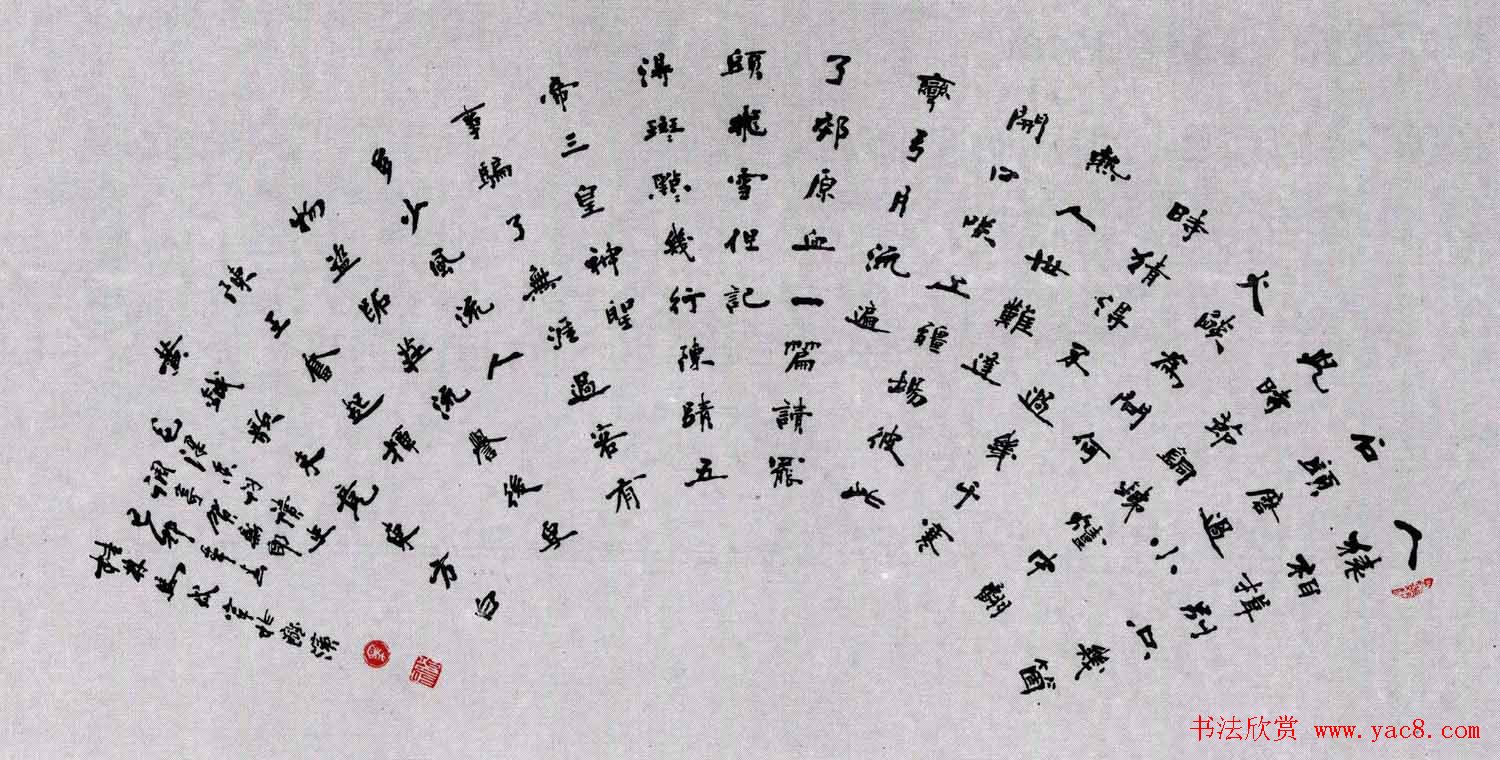 人猿相揖別只幾箇
石頭磨過小
兒時節銅鐵鑪中翻
火燄為問何
時猜得不過幾千寒
熱人世難逢
開口咲上疆場彼此
彎弓月流遍
了郊原血一篇讀罷
頭飛雪但記
得斑〻點〻幾行陳蹟五
帝三皇神聖
事騙了無涯過客有
多少風流人
物盜跖莊流譽後更
陳王奮起揮
黃鉞歌未竟東方白
毛澤東咏讀史
調寄賀新郎
桂林
书法欣赏 www.yac8.com